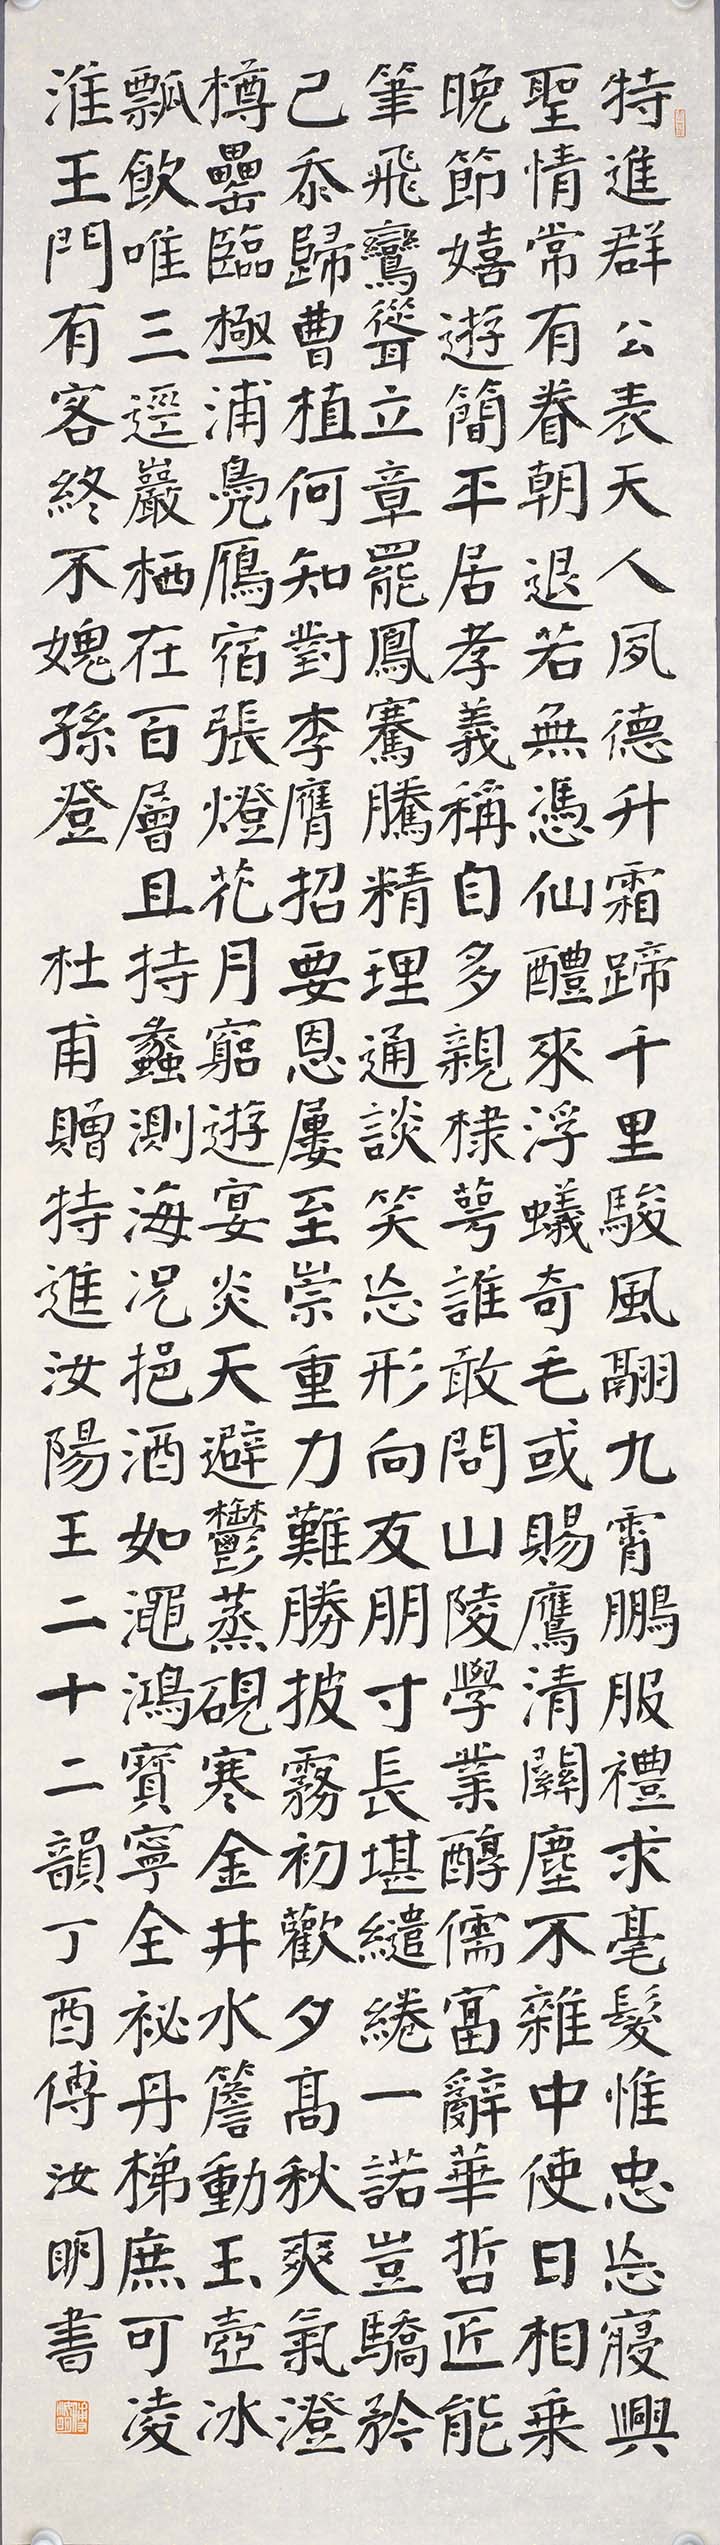 特進群公表天人夙德升霜蹄千里駿風翮九霄鵬服禮求毫髮惟忠忘寢興
聖情常有眷朝退若無憑仙醴來浮蟻奇毛或賜鷹清關塵不雜中使日相乗
晚節嬉遊簡平居孝義稱自多親棣萼誰敢問山陵學業醇儒富辭華哲匠能
筆飛鸞聳立章罷鳳騫騰精理通談笑忘形向友朋寸長堪繾綣一諾豈驕矜
己忝歸曹植何知對李膺招要恩屢至崇重力難勝披霧初歡夕高秋爽氣澄
樽罍臨極浦鳧鴈宿張燈花月窮遊宴炎天避鬱蒸硯寒金井水簷動玉壺冰
瓢飲唯三逕巖栖在百層且持蠡測海況挹酒如澠鴻寶寧全祕丹梯庶可凌
淮王門有客終不媿孫登 杜甫贈特進汝陽王二十二韻丁酉傅汝明書